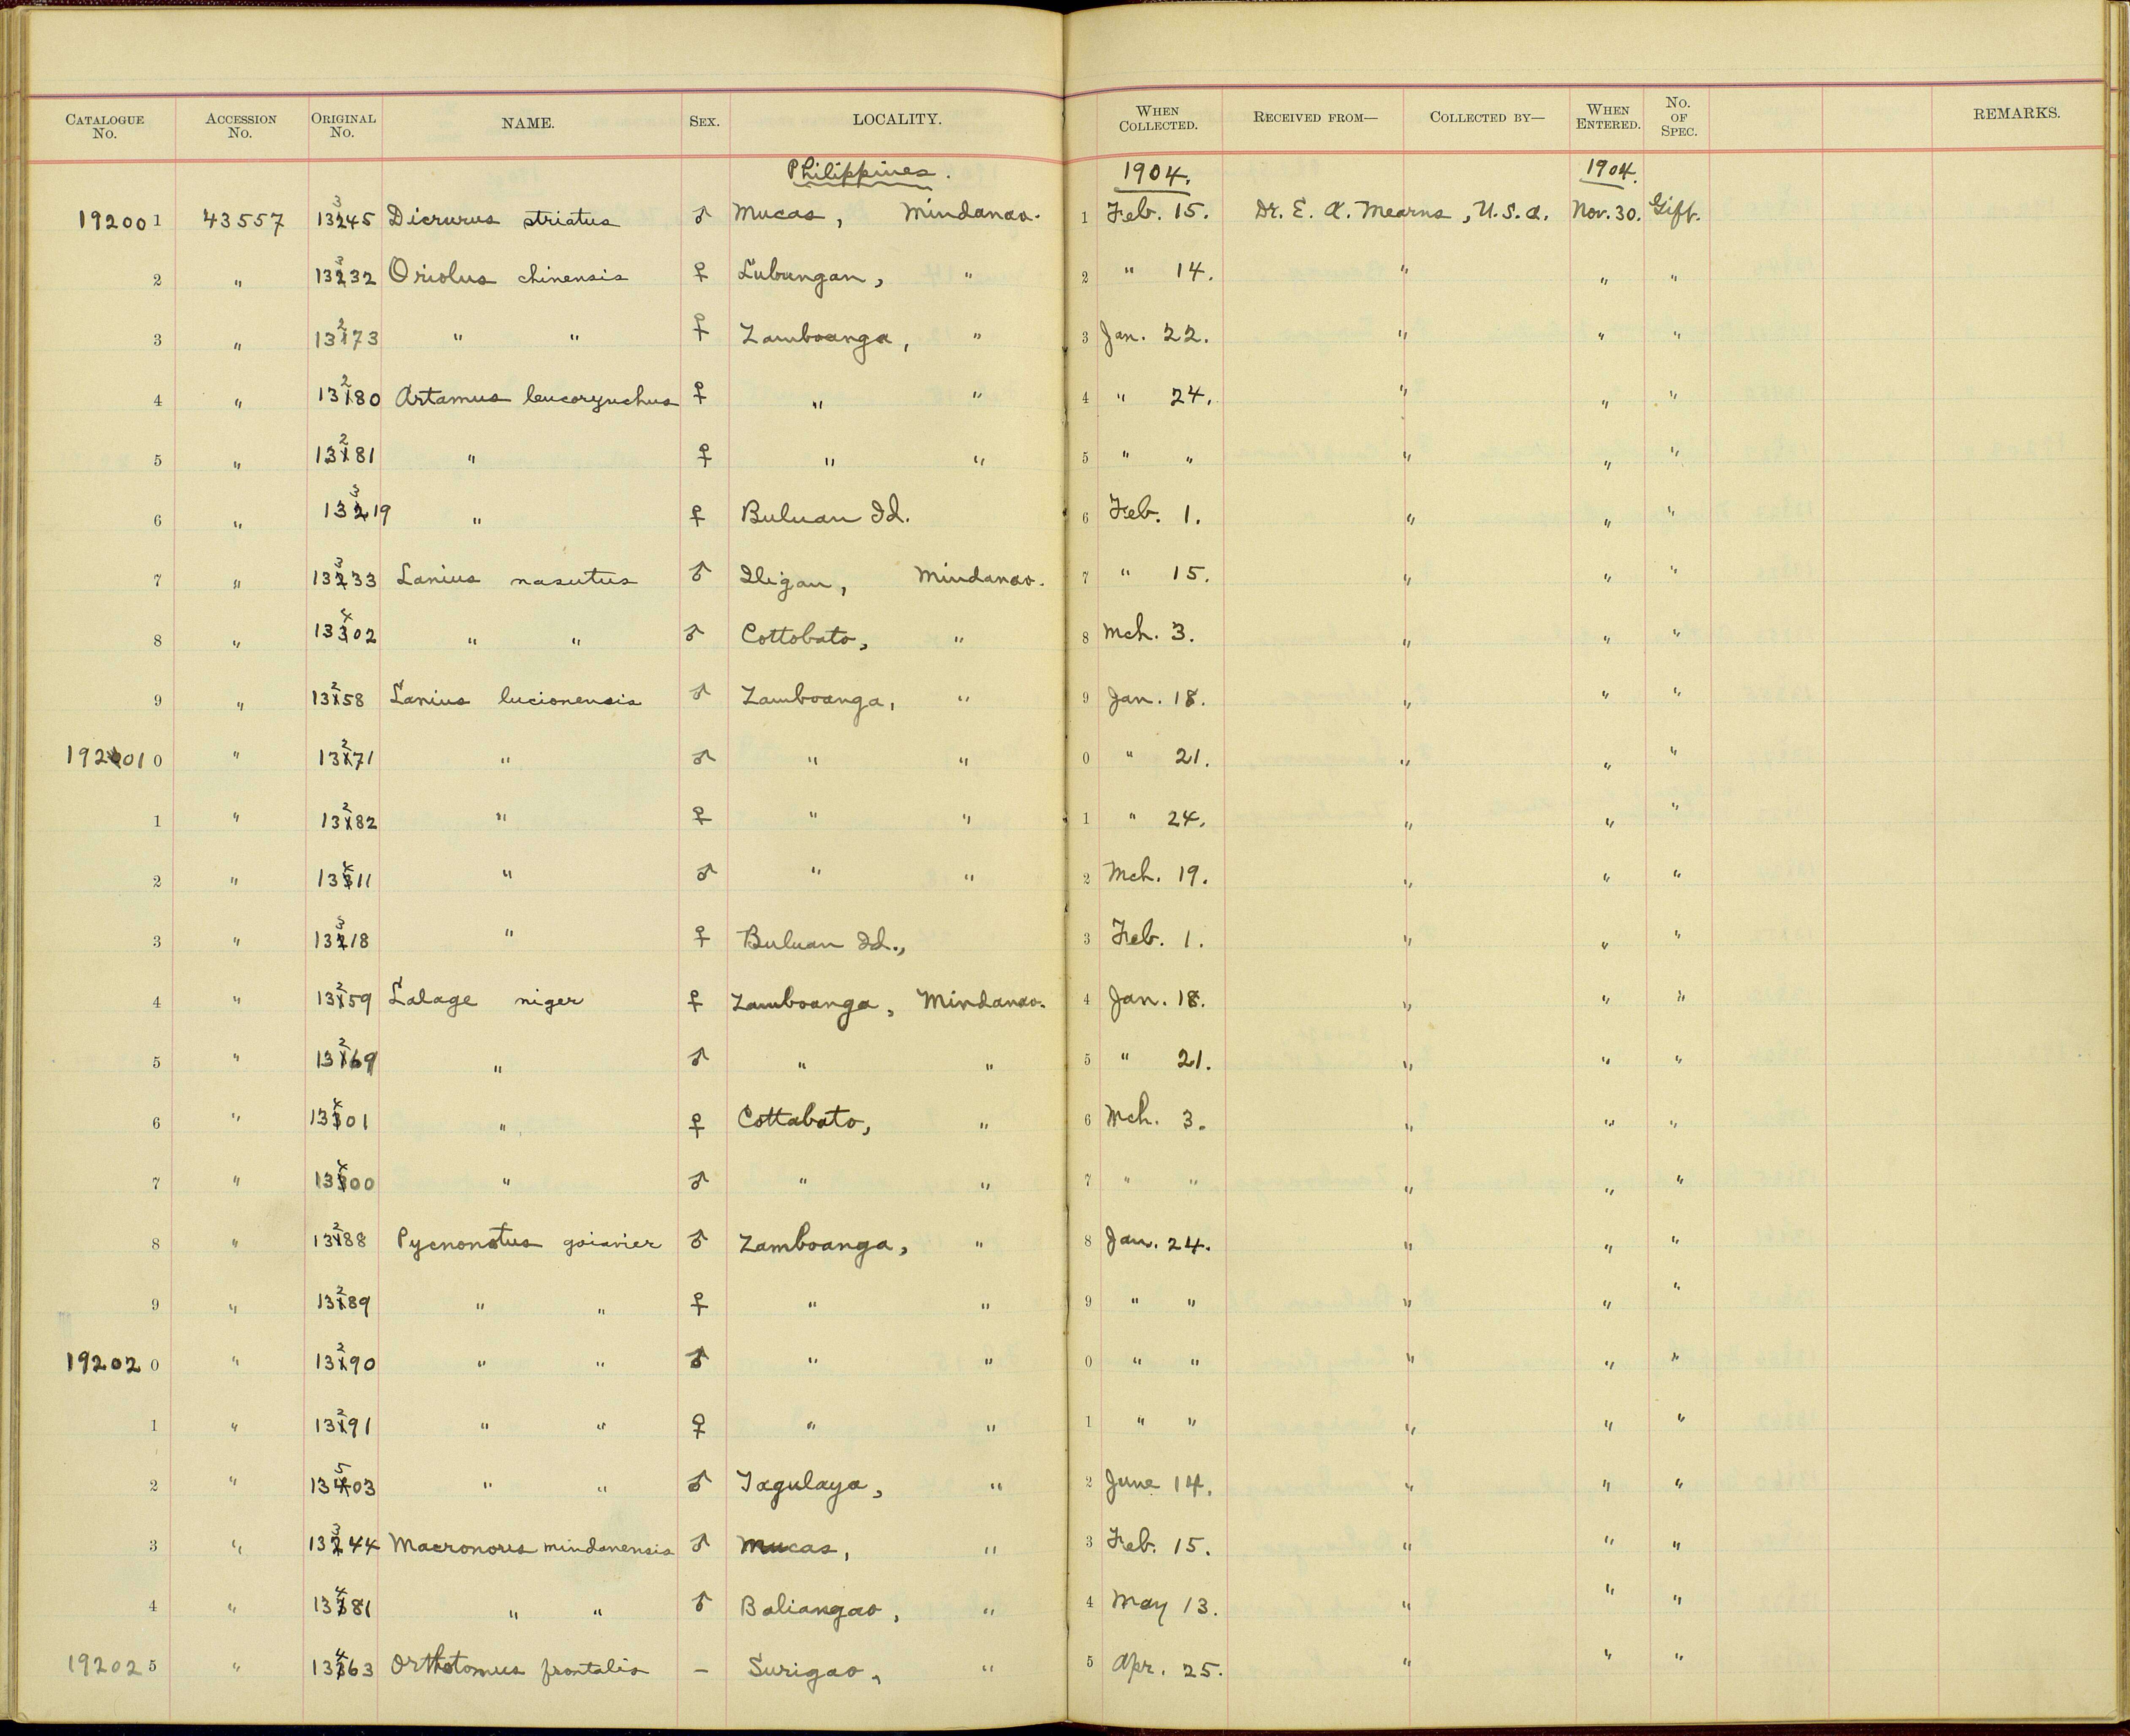 CATALOGUE No. ACCESSION No. ORIGINAL No. NAME. SEX. LOCALITY. WHEN COLLECTED. RECEIVED FROM— COLLECTED BY— WHEN ENTERED. No. OF SPEC. REMARKS.
Philippines. 1904. 1904.
19200 1 43557 13345 Dicrurus striatus ♂ Mucas, Mindanao. 1 Feb. 15. Dr. E. A. Mearns, U.S.A. Nov. 30. Gift.
2 " 13332 Oriolus chinensis ♀ Lubungan, " 2 " 14. " " "
3 " 13273 " " ♀ Zamboanga, " 3 Jan. 22. " " "
4 " 13280 Artamus leucorynchus ♀ " " 4 " 24. " " "
5 " 13281 " ♀ " " 5 " " " " "
6 " 13319 " ♀ Buluan Id. 6 Feb. 1. " " "
7 " 13333 Lanius nasutus ♂ Iligan, Mindanao. 7 " 15. " " "
8 " 13402 " " ♂ Cottobato, " 8 Mch. 3. " " "
9 " 13258 Lanius lucionensis ♂ Zamboanga, " 9 Jan. 18. " " "
19201 0 " 13271 " ♂ " " 0 " 21. " " "
1 " 13282 " ♀ " " 1 " 24. " " "
2 " 13411 " ♂ " " 2 Mch. 19. " " "
3 " 13318 " ♀ Buluan Id., 3 Feb. 1. " " "
4 " 13259 Lalage niger ♀ Zamboanga, Mindanao. 4 Jan. 18. " " "
5 " 13269 " ♂ " " 5 " 21. " " "
6 " 13401 " ♀ Cottabato, " 6 Mch. 3. " " "
7 " 13400 " ♂ " " 7 " " " " "
8 " 13288 Pycnonotus goiavier ♂ Zamboanga, " 8 Jan. 24. " " "
9 " 13289 " " ♀ " " 9 " " " " "
19202 0 " 13290 " " ♂ " " 0 " " " " "
1 " 13291 " " ♀ " " 1 " " " " "
2 " 13503 " " ♂ Tagulaya, " 2 June 14. " " "
3 " 13344 Macronous mindanensis ♂ Mucas, " 3 Feb. 15. " " "
4 " 13481 " " ♂ Baliangao, " 4 May 13. " " "
19202 5 " 13463 Orthotomus frontalis – Surigao, " 5 Apr. 25. " " "